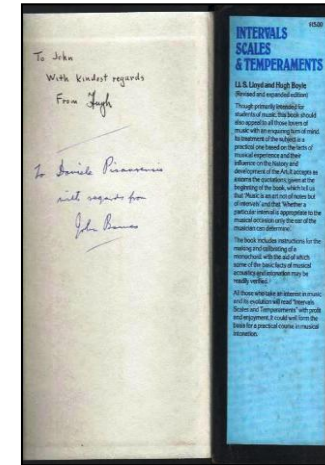 To John
With kindest regards
From Hugh
To Daniele
with regards from
John Barnes
INTERVALS
SCALES
& TEMPERAMENTS
Ll. S. Lloyd and Hugh Boyle
(Revised and expanded edition)
Though primarily intended for
students of music, this book should
also appeal to all those lovers of
music with an enquiring turn of mind.
Its treatment of the subject is a
practical one based on the facts of
musical experience and their
influence on the history and
development of the Art. It accepts as
axioms the quotations given at the
beginning of the book, which tell us
that 'Music is an art not of notes but
of intervals' and that 'Whether a
particular interval is appropriate to the
musical occasion only the ear of the
musician can determine.'
The book includes instructions for the
making and calibrating of a
monochord with the aid of which
some of the basic facts of musical
acoustics and intonation may be
readily verified.
All those who take an interest in music
and its evolution will read "Intervals
Scales and Temperaments" with profit
and enjoyment. It could well form the
basis for a practical course in musical
intonation.